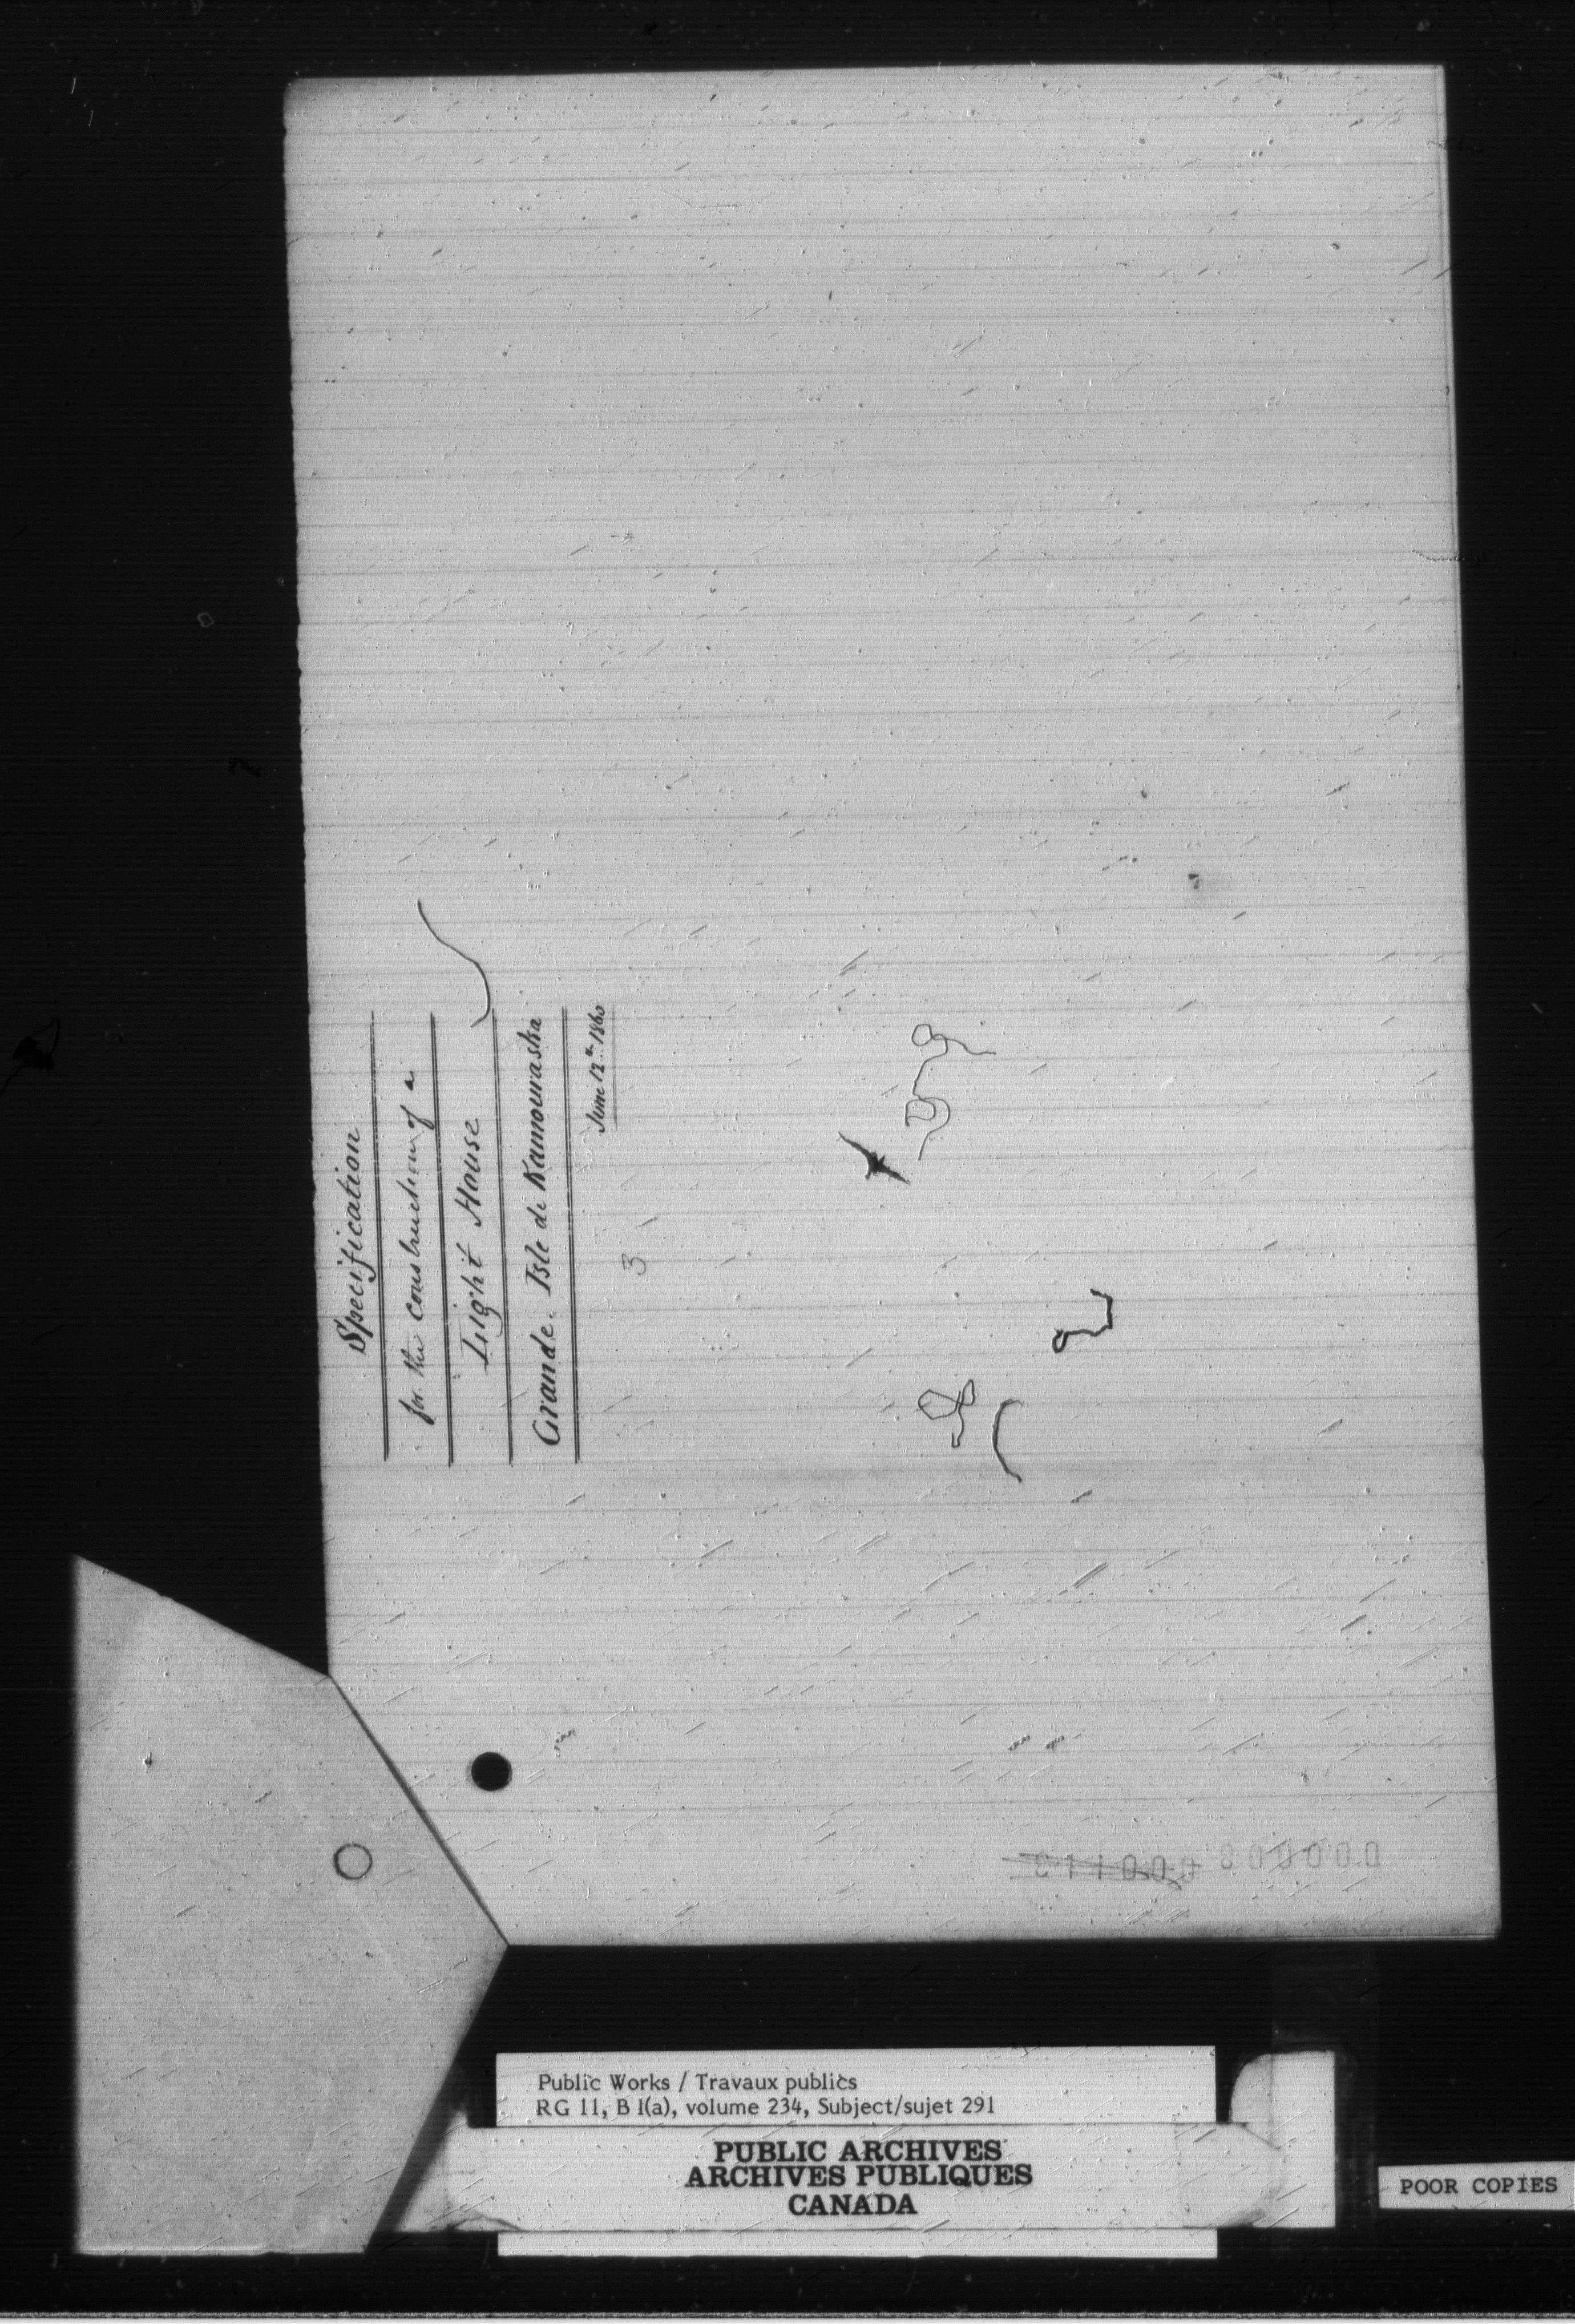 Specification
for the construction of a
Light House
Grande Isle de Kamouraska
June 12th 1860
3
Public Works / Travaux publics
RG 11, B 1(a), volume 234, Subject/sujet 291
PUBLIC ARCHIVES
ARCHIVES PUBLIQUES
CANADA
POOR COPIES